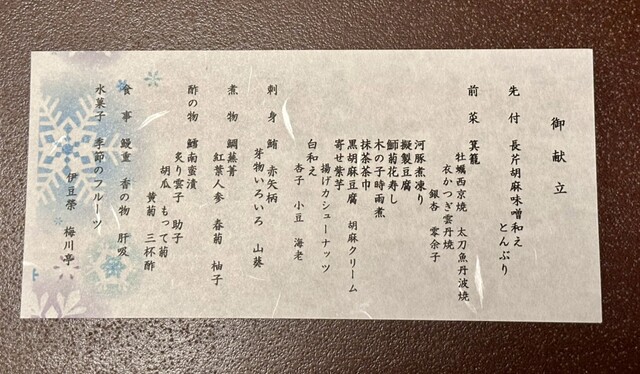 御献立
先付 長芹胡麻味噌和え
とんぶり
前菜 箕籠
牡蠣西京焼 太刀魚丹波焼
衣かつぎ雲丹焼
銀杏 零余子
河豚煮凍り
擬製豆腐
鰤菊花寿し
木の子時雨煮
抹茶茶巾
黒胡麻豆腐 胡麻クリーム
寄せ紫芋
揚げカシューナッツ
白和え
杏子 小豆 海老
刺身 鮪 赤矢柄
芽物いろいろ 山葵
煮物 鯛蕪菁
紅葉人参 春菊 柚子
酢の物 鱈南蛮漬
炙り雲子 助子
胡瓜 もって菊
黄菊 三杯酢
食事 鰻重 香の物 肝吸
水菓子 季節のフルーツ
伊豆榮 梅川亭